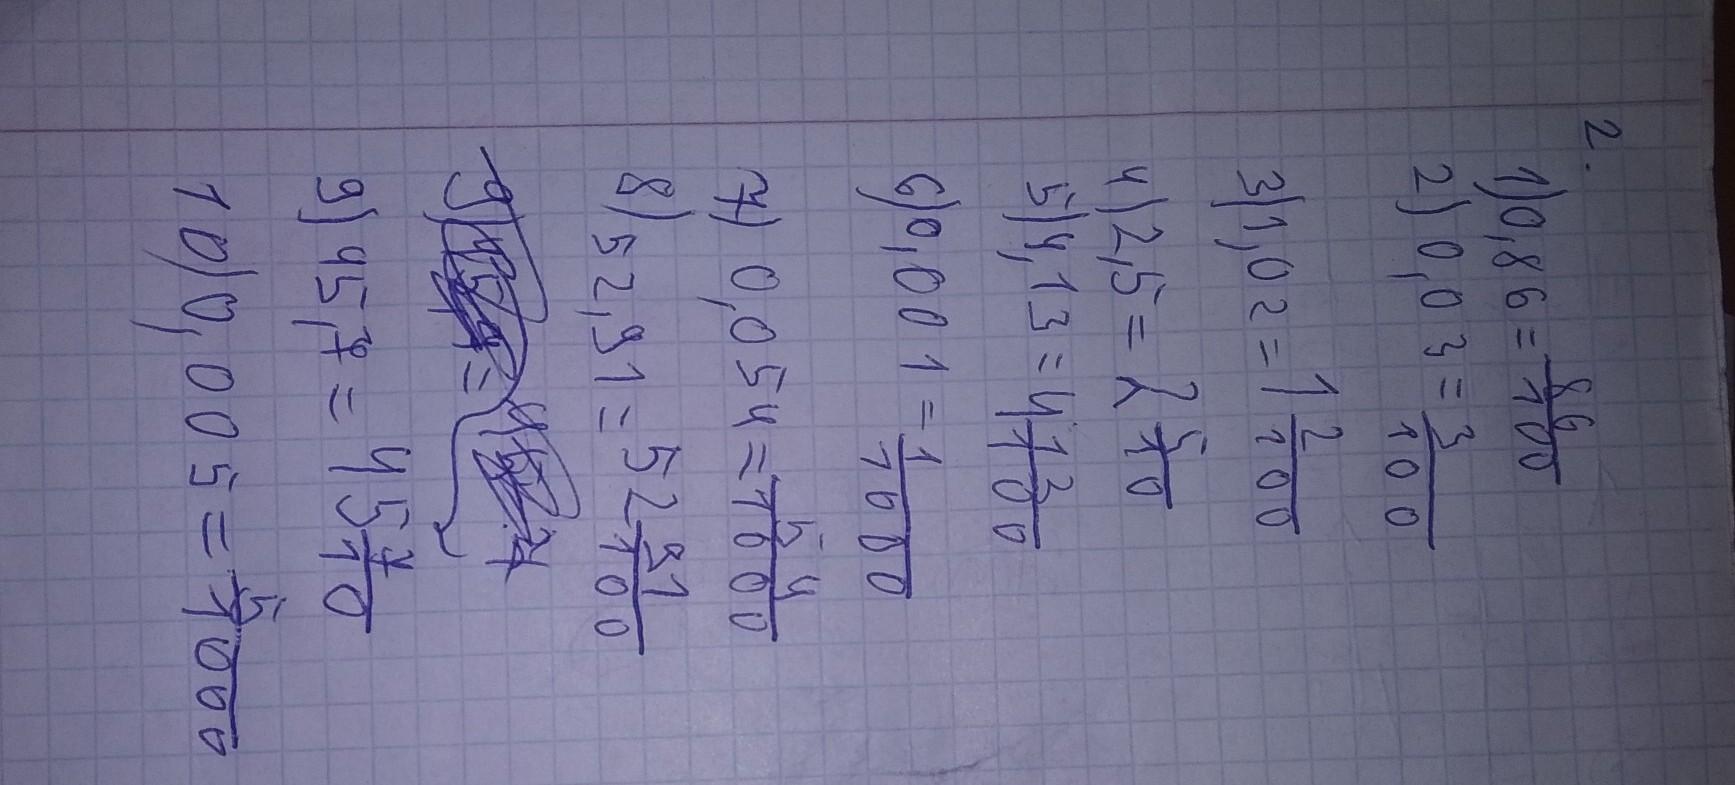 2.
1) 0,86 = 86/100
2) 0,03 = 3/100
3) 1,02 = 1 2/100
4) 2,5 = 2 5/10
5) 4,13 = 4 13/100
6) 0,001 = 1/1000
7) 0,054 = 54/1000
8) 52,91 = 52 91/100
9)
9) 45,7 = 45 7/10
10) 0,005 = 5/1000